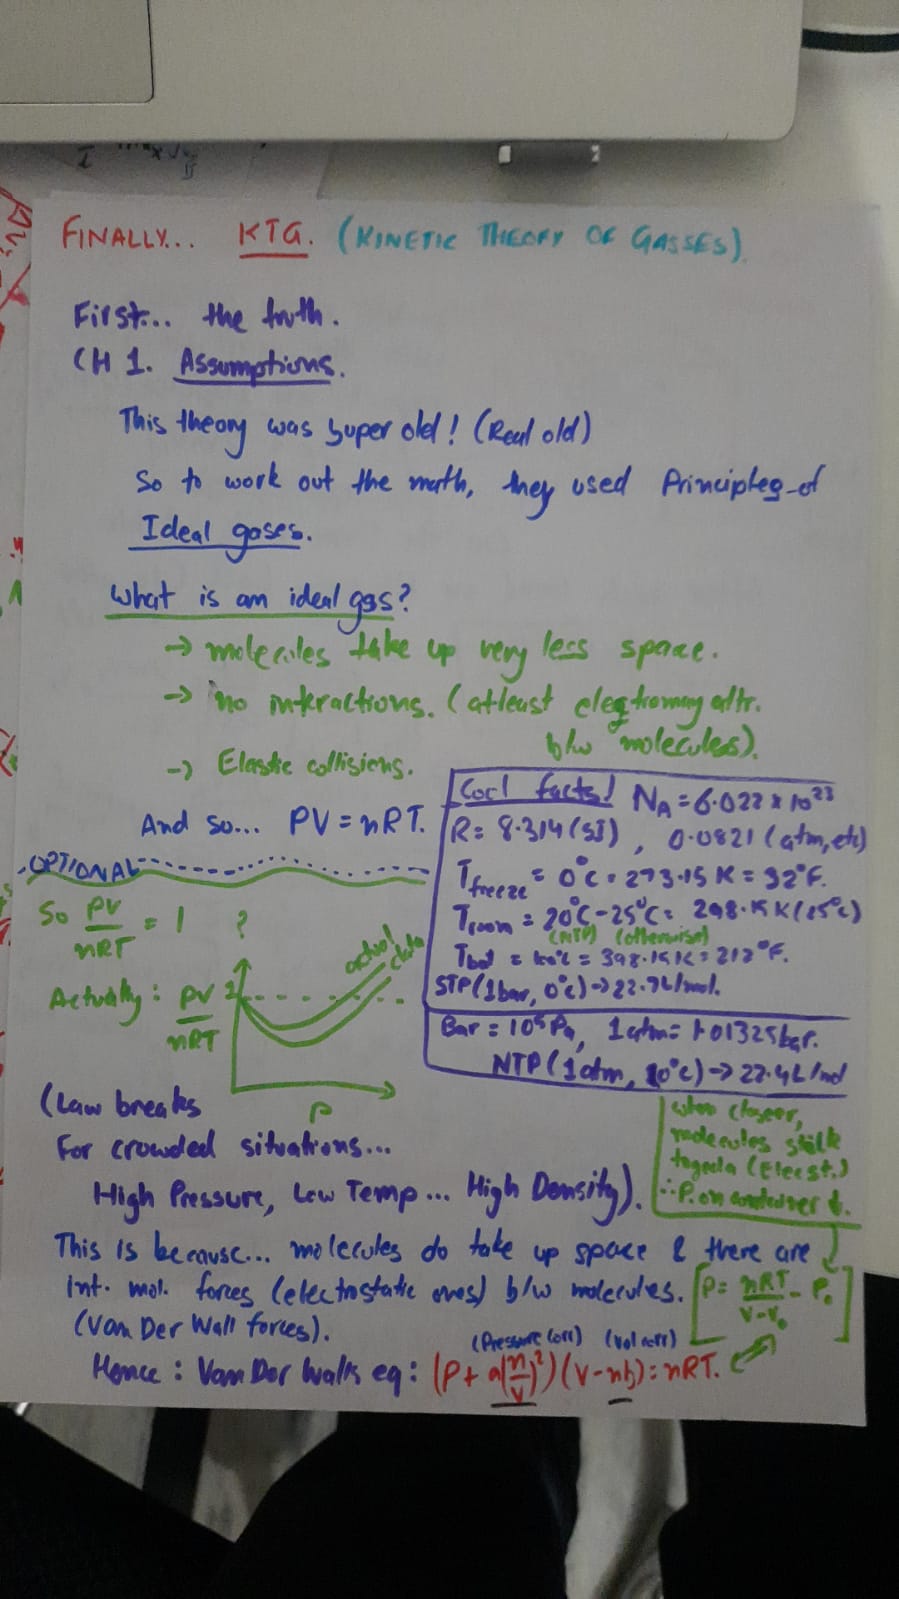 FINALLY... KTG. (KINETIC THEORY OF GASSES).
First... the truth.
CH 1. Assumptions.
This theory was super old! (Real old)
So to work out the math, they used Principles of
Ideal gases.
What is an ideal gas?
→ molecules take up very less space.
→ no interactions. (atleast electromag attr.
b/w molecules).
→ Elastic collisions.
And so... PV = nRT.
Cool facts! NA = 6.022 x 10^23
R = 8.314 (SI), 0.0821 (atm, etc)
Tfreeze = 0°C = 273.15 K = 32°F.
Troom = 20°C-25°C = 298.15 K (25°C)
(NTP) (otherwise)
= 398.15 K = 212°F.
STP (1bar, 0°C) → 22.7L/mol.
Bar = 10^5 Pa, 1 atm = 1.01325 bar.
NTP (1 atm, °C) → 22.4L/mol
OPTIONAL
So PV/nRT = 1 ?
Actually: PV/nRT
1
actual data
P
(Law breaks
For crowded situations...
High Pressure, Low Temp... High Density).
when closer,
molecules stick
(Elecst.)
∴ P. on container ↓.
This is because... molecules do take up space & there are
int. mol. forces (electrostatic ones) b/w molecules.
(Van Der Wall forces).
[P = nRT/V-V₀ - P₀]
(Pressure corr) (Vol corr)
Hence: Van Der Walls eq: (P + a(n/V)^2)(V-nb) = nRT.